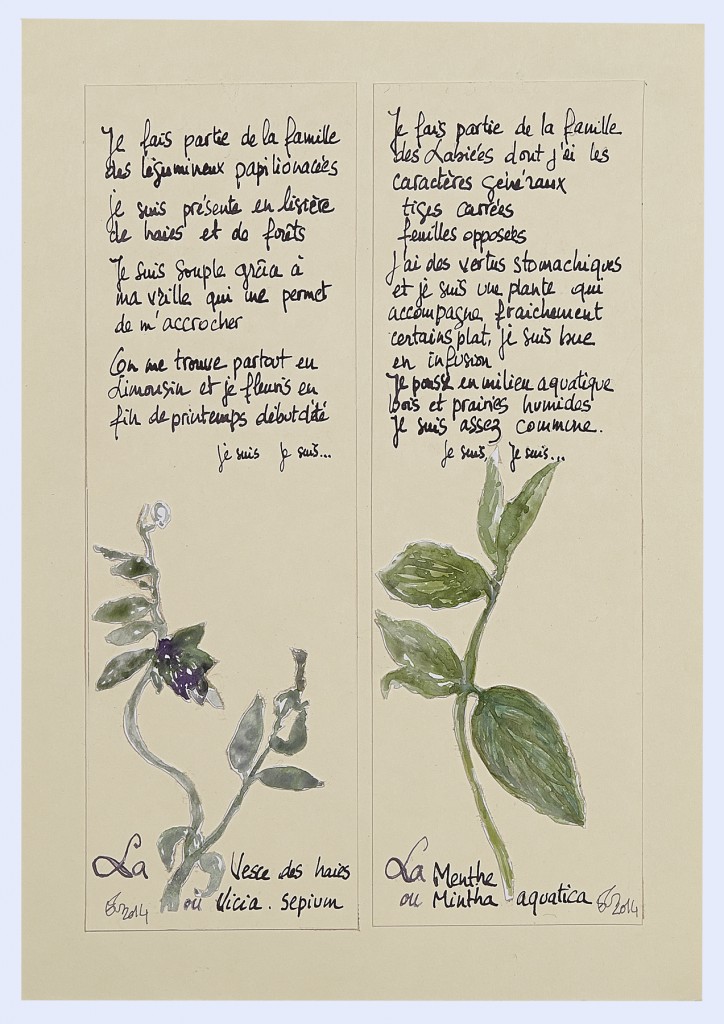 Je fais partie de la famille
des légumineux papilionacées
je suis présente en lisière
de haies et de forêts
Je suis souple grâce à
ma vrille qui me permet
de m'accrocher
On me trouve partout en
Limousin et je fleuris en
fin de printemps début d'été
je suis je suis...
La Vesce des haies
ou Vicia . sepium
2014
Je fais partie de la famille
des Labiées dont j'ai les
caractères généraux
tiges carrées
feuilles opposées
J'ai des vertus stomachiques
et je suis une plante qui
accompagne fraichement
certains plat, je suis bue
en infusion
Je pousse en milieu aquatique
bois et prairies humides
Je suis assez commune.
je suis, je suis...
La Menthe
ou Mintha aquatica
2014